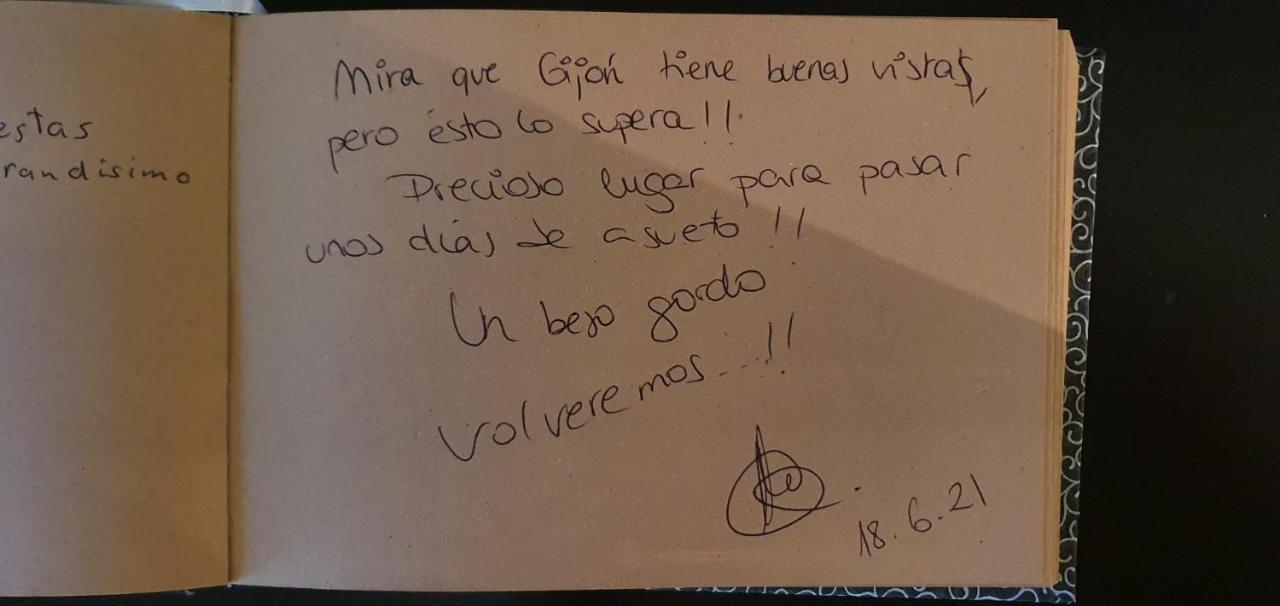 estas
randisimo
Mira que Gijón tiene buenas vistas,
pero esto lo supera!!
Precioso lugar para pasar
unos días de asueto!!
Un beso gordo
volveremos...!!
18.6.21